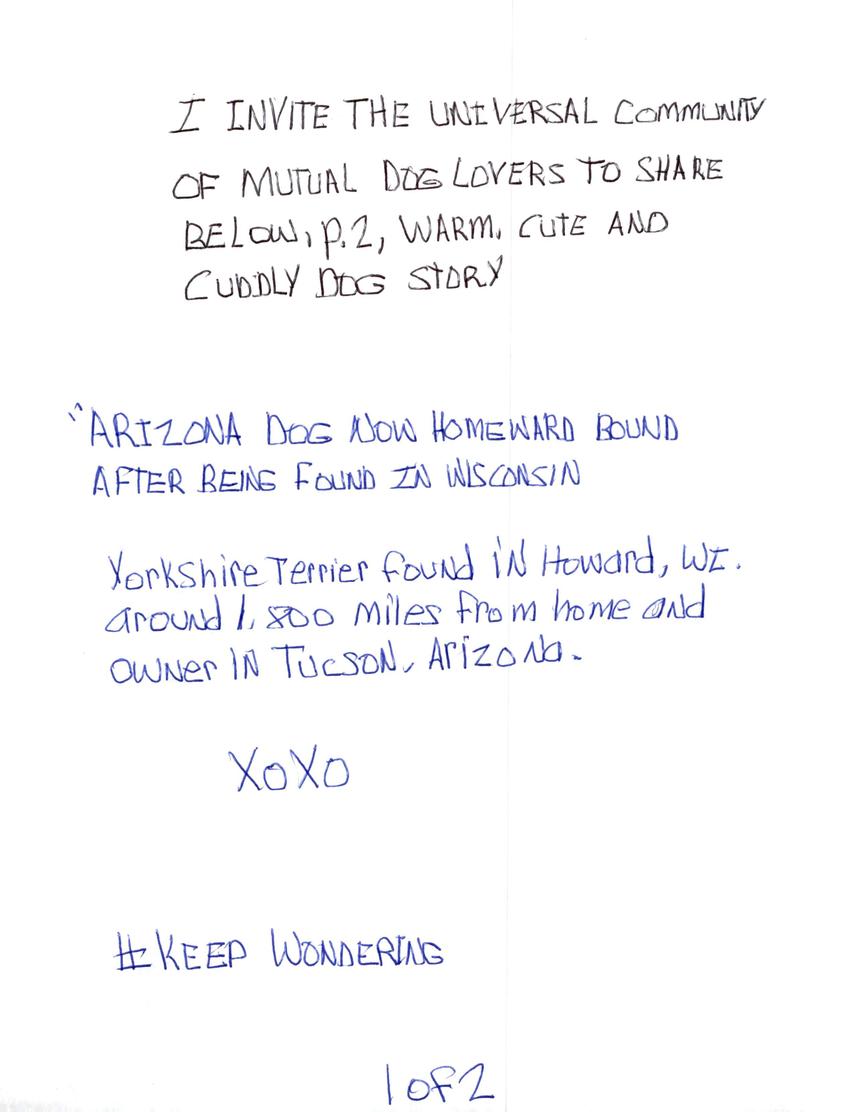 I INVITE THE UNIVERSAL COMMUNITY
OF MUTUAL DOG LOVERS TO SHARE
BELOW, p.2, WARM, CUTE AND
CUDDLY DOG STORY
"ARIZONA DOG NOW HOMEWARD BOUND
AFTER BEING FOUND IN WISCONSIN
Yorkshire Terrier found iN Howard, WI.
around 1,800 miles from home and
owner IN Tucson, Arizona.
XoXo
#KEEP WONDERING
1 of 2